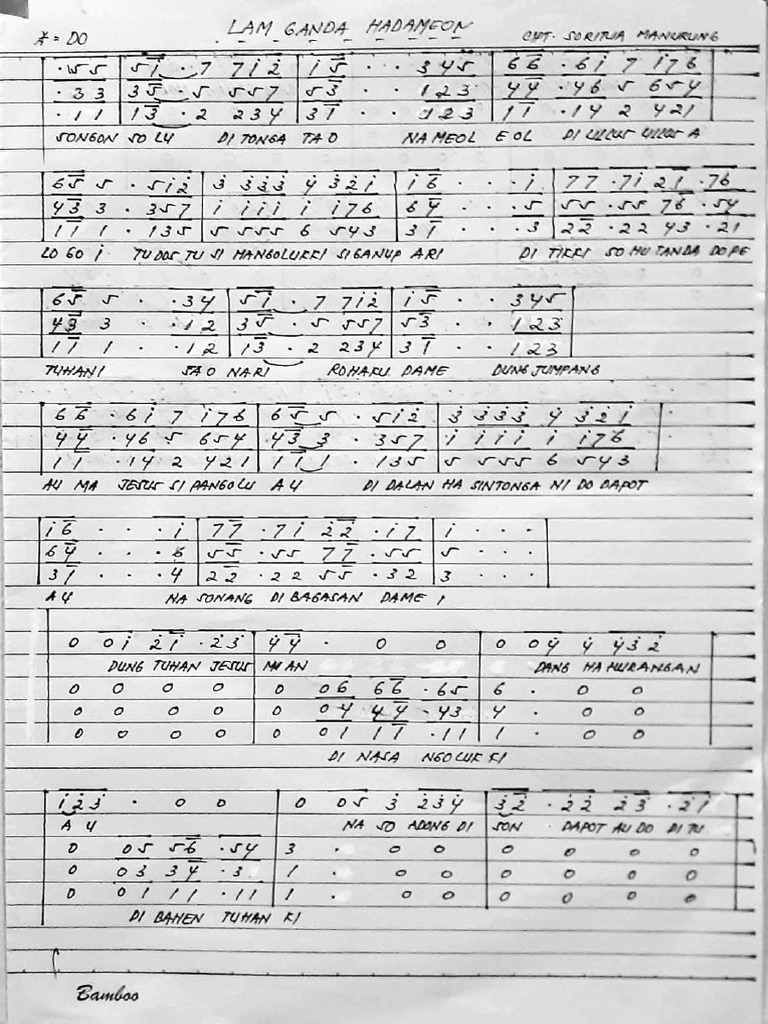 LAM GANDA HADAMEON
X = DO CIPT. SORITUA MANURUNG
. 5 5 | 5 i . 7 7 i 2 | i 5 . . 3 4 5 | 6 6 . 6 i 7 i 7 6
. 3 3 | 3 5 . 5 5 5 7 | 5 3 . . 1 2 3 | 4 4 . 4 6 5 6 5 4
. 1 1 | 1 3 . 2 2 3 4 | 3 1 . . 1 2 3 | 1 1 . 1 4 2 4 2 1
SONGON SOLU DI TONGA TAO NA MEOL EOL DI ULLUS ULLUS A
6 5 5 . 5 i 2 | 3 3 3 3 4 3 2 i | i 6 . . . i | 7 7 . 7 i 2 i . 7 6
4 3 3 . 3 5 7 | i i i i i i 7 6 | 6 4 . . . 5 | 5 5 . 5 5 7 6 . 5 4
1 1 1 . 1 3 5 | 5 5 5 5 6 5 4 3 | 3 1 . . . 3 | 2 2 . 2 2 4 3 . 2 1
LO GO I TUDOS TU SI MANGOLUKKI SIGANUP ARI DI TIKKI SO HU TANDA DOPE
6 5 5 . . 3 4 | 5 i . 7 7 i 2 | i 5 . . 3 4 5
4 3 3 . . 1 2 | 3 5 . 5 5 5 7 | 5 3 . . 1 2 3
1 1 1 . . 1 2 | 1 3 . 2 2 3 4 | 3 1 . . 1 2 3
TUHANI SAO NARI ROHAKU DAME DUNG JUMPANG
6 6 . 6 i 7 i 7 6 | 6 5 5 . 5 i 2 | 3 3 3 3 4 3 2 i
4 4 . 4 6 5 6 5 4 | 4 3 3 . 3 5 7 | i i i i i i 7 6
1 1 . 1 4 2 4 2 1 | 1 1 1 . 1 3 5 | 5 5 5 5 6 5 4 3
AU MA JESUS SI PANGOLU AU DI DALAN HA SINTONGA NI DO DAPOT
i 6 . . . i | 7 7 . 7 i 2 2 . i 7 | i . . .
6 4 . . . 6 | 5 5 . 5 5 7 7 . 5 5 | 5 . . .
3 1 . . . 4 | 2 2 . 2 2 5 5 . 3 2 | 3 . . .
AU NA SONANG DI BAGASAN DAME I
0 0 i 2 i . 2 3 | 4 4 . 0 0 | 0 0 4 4 4 3 2
DUNG TUHAN JESUS MA AN DANG HAHURANGAN
0 0 0 0 | 0 0 6 6 6 . 6 5 | 6 . 0 0
0 0 0 0 | 0 0 4 4 4 . 4 3 | 4 . 0 0
0 0 0 0 | 0 0 1 1 1 . 1 1 | 1 . 0 0
DI NASA NGOLUKKI
i 2 3 . 0 0 | 0 0 5 3 2 3 4 | 3 2 . 2 2 2 3 . 2 i
AU NA SO ADONG DI SON DAPOT AU DO DI TU
0 0 5 5 6 . 5 4 | 3 . 0 0 | 0 0 0 0
0 0 3 3 4 . 3 . | 1 . 0 0 | 0 0 0 0
0 0 1 1 1 . 1 1 | 1 . 0 0 | 0 0 0 0
DI BAHEN TUHAN KI
Bamboo